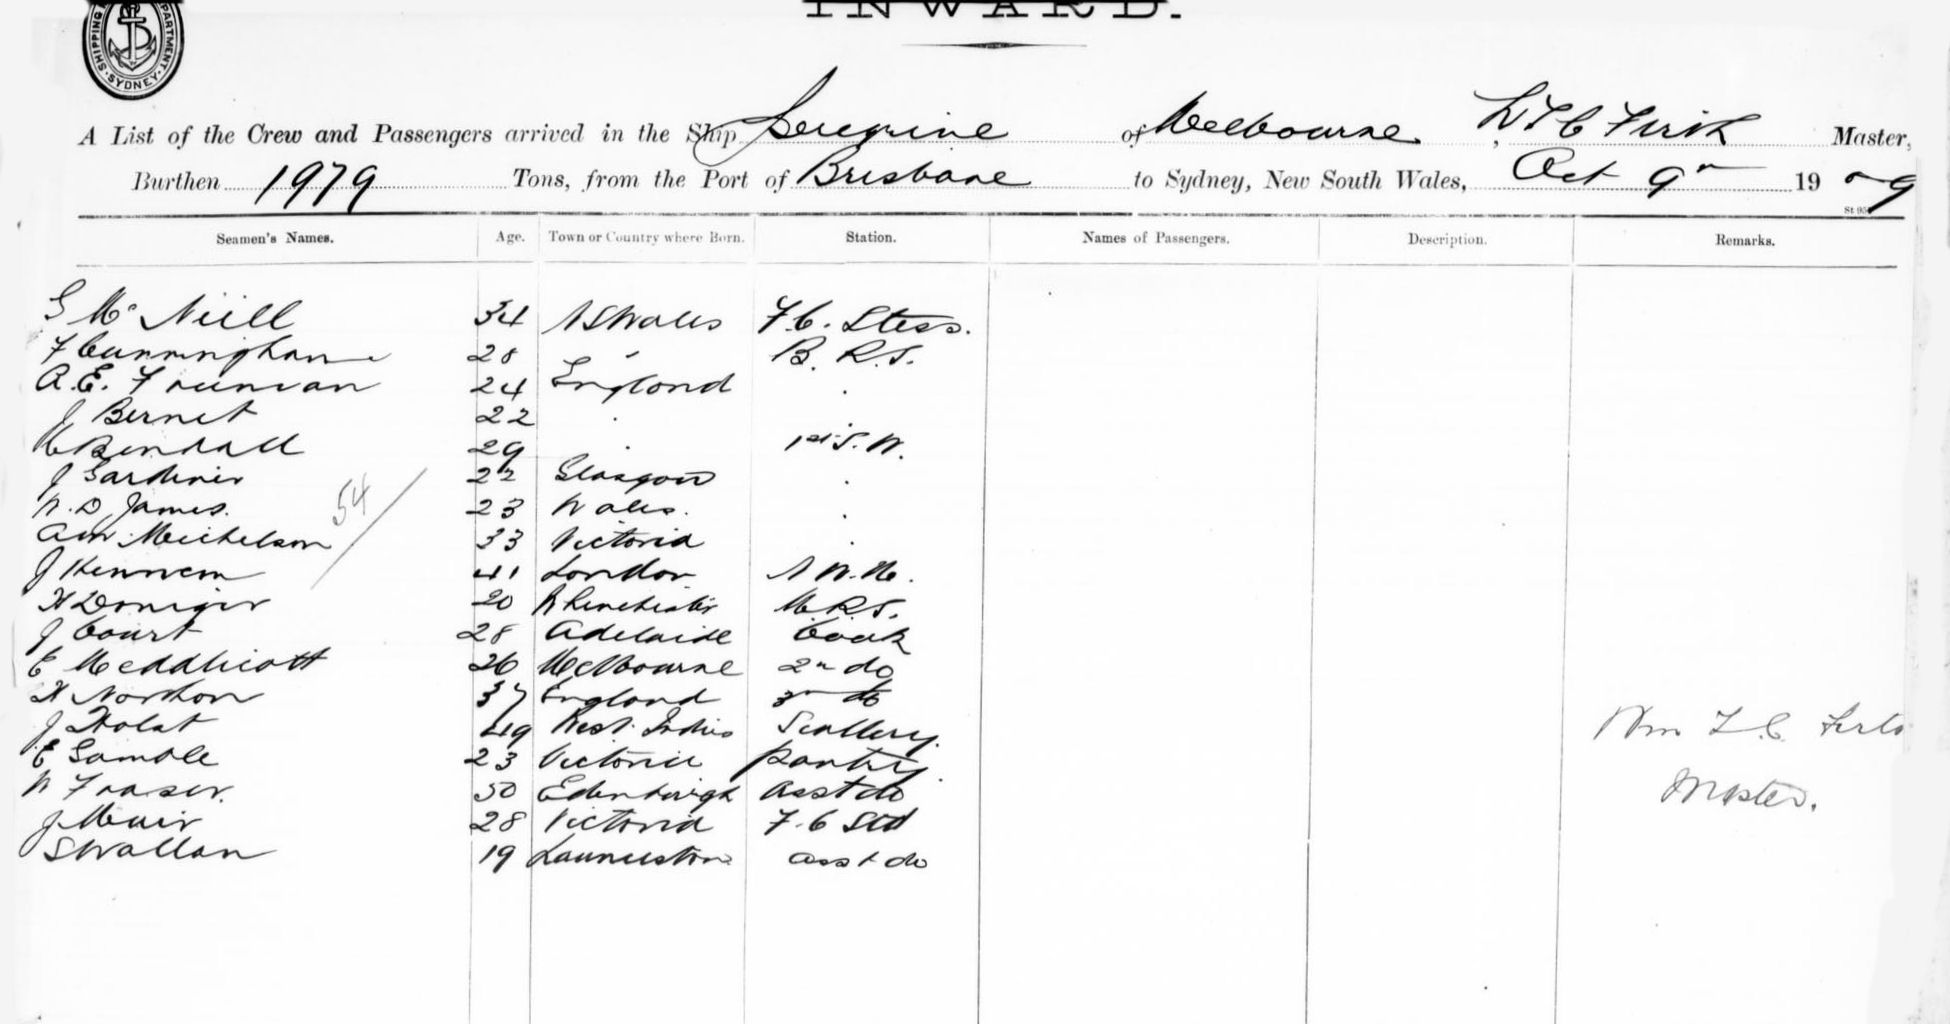 INWARD.
SHIPPING DEPARTMENT SYDNEY
A List of the Crew and Passengers arrived in the Ship Peregrine of Melbourne, Master,
Burthen 1979 Tons, from the Port of Brisbane to Sydney, New South Wales, Oct 9th 1909
Seamen's Names. Age. Town or Country where Born. Station. Names of Passengers. Description. Remarks.
G McNeill 34 N S Wales F.C. Stess.
F Cunningham 28 " B. R. S.
A. E. 24 England .
J Bernet 22 .
Bendall 29 . 1st S. W.
J Gardiner 22 Glasgow .
W. D. James. 23 Wales. .
Michelson 33 Victoria .
54
J 41 London N W. M.
H Doniger 20 M. R. S.
J Court 28 Adelaide Cook
E Meddlicott 26 Melbourne 2nd do
H Norton 37 England 3rd do
J Holst 49 West Indies Scullery.
E Gamble 23 Victoria Pantry.
W Fraser. 50 Edenburgh Asst do
J Muir 28 Victoria F. C Std
S Wallan 19 Launceston asst do
Wm F. C.
Master.